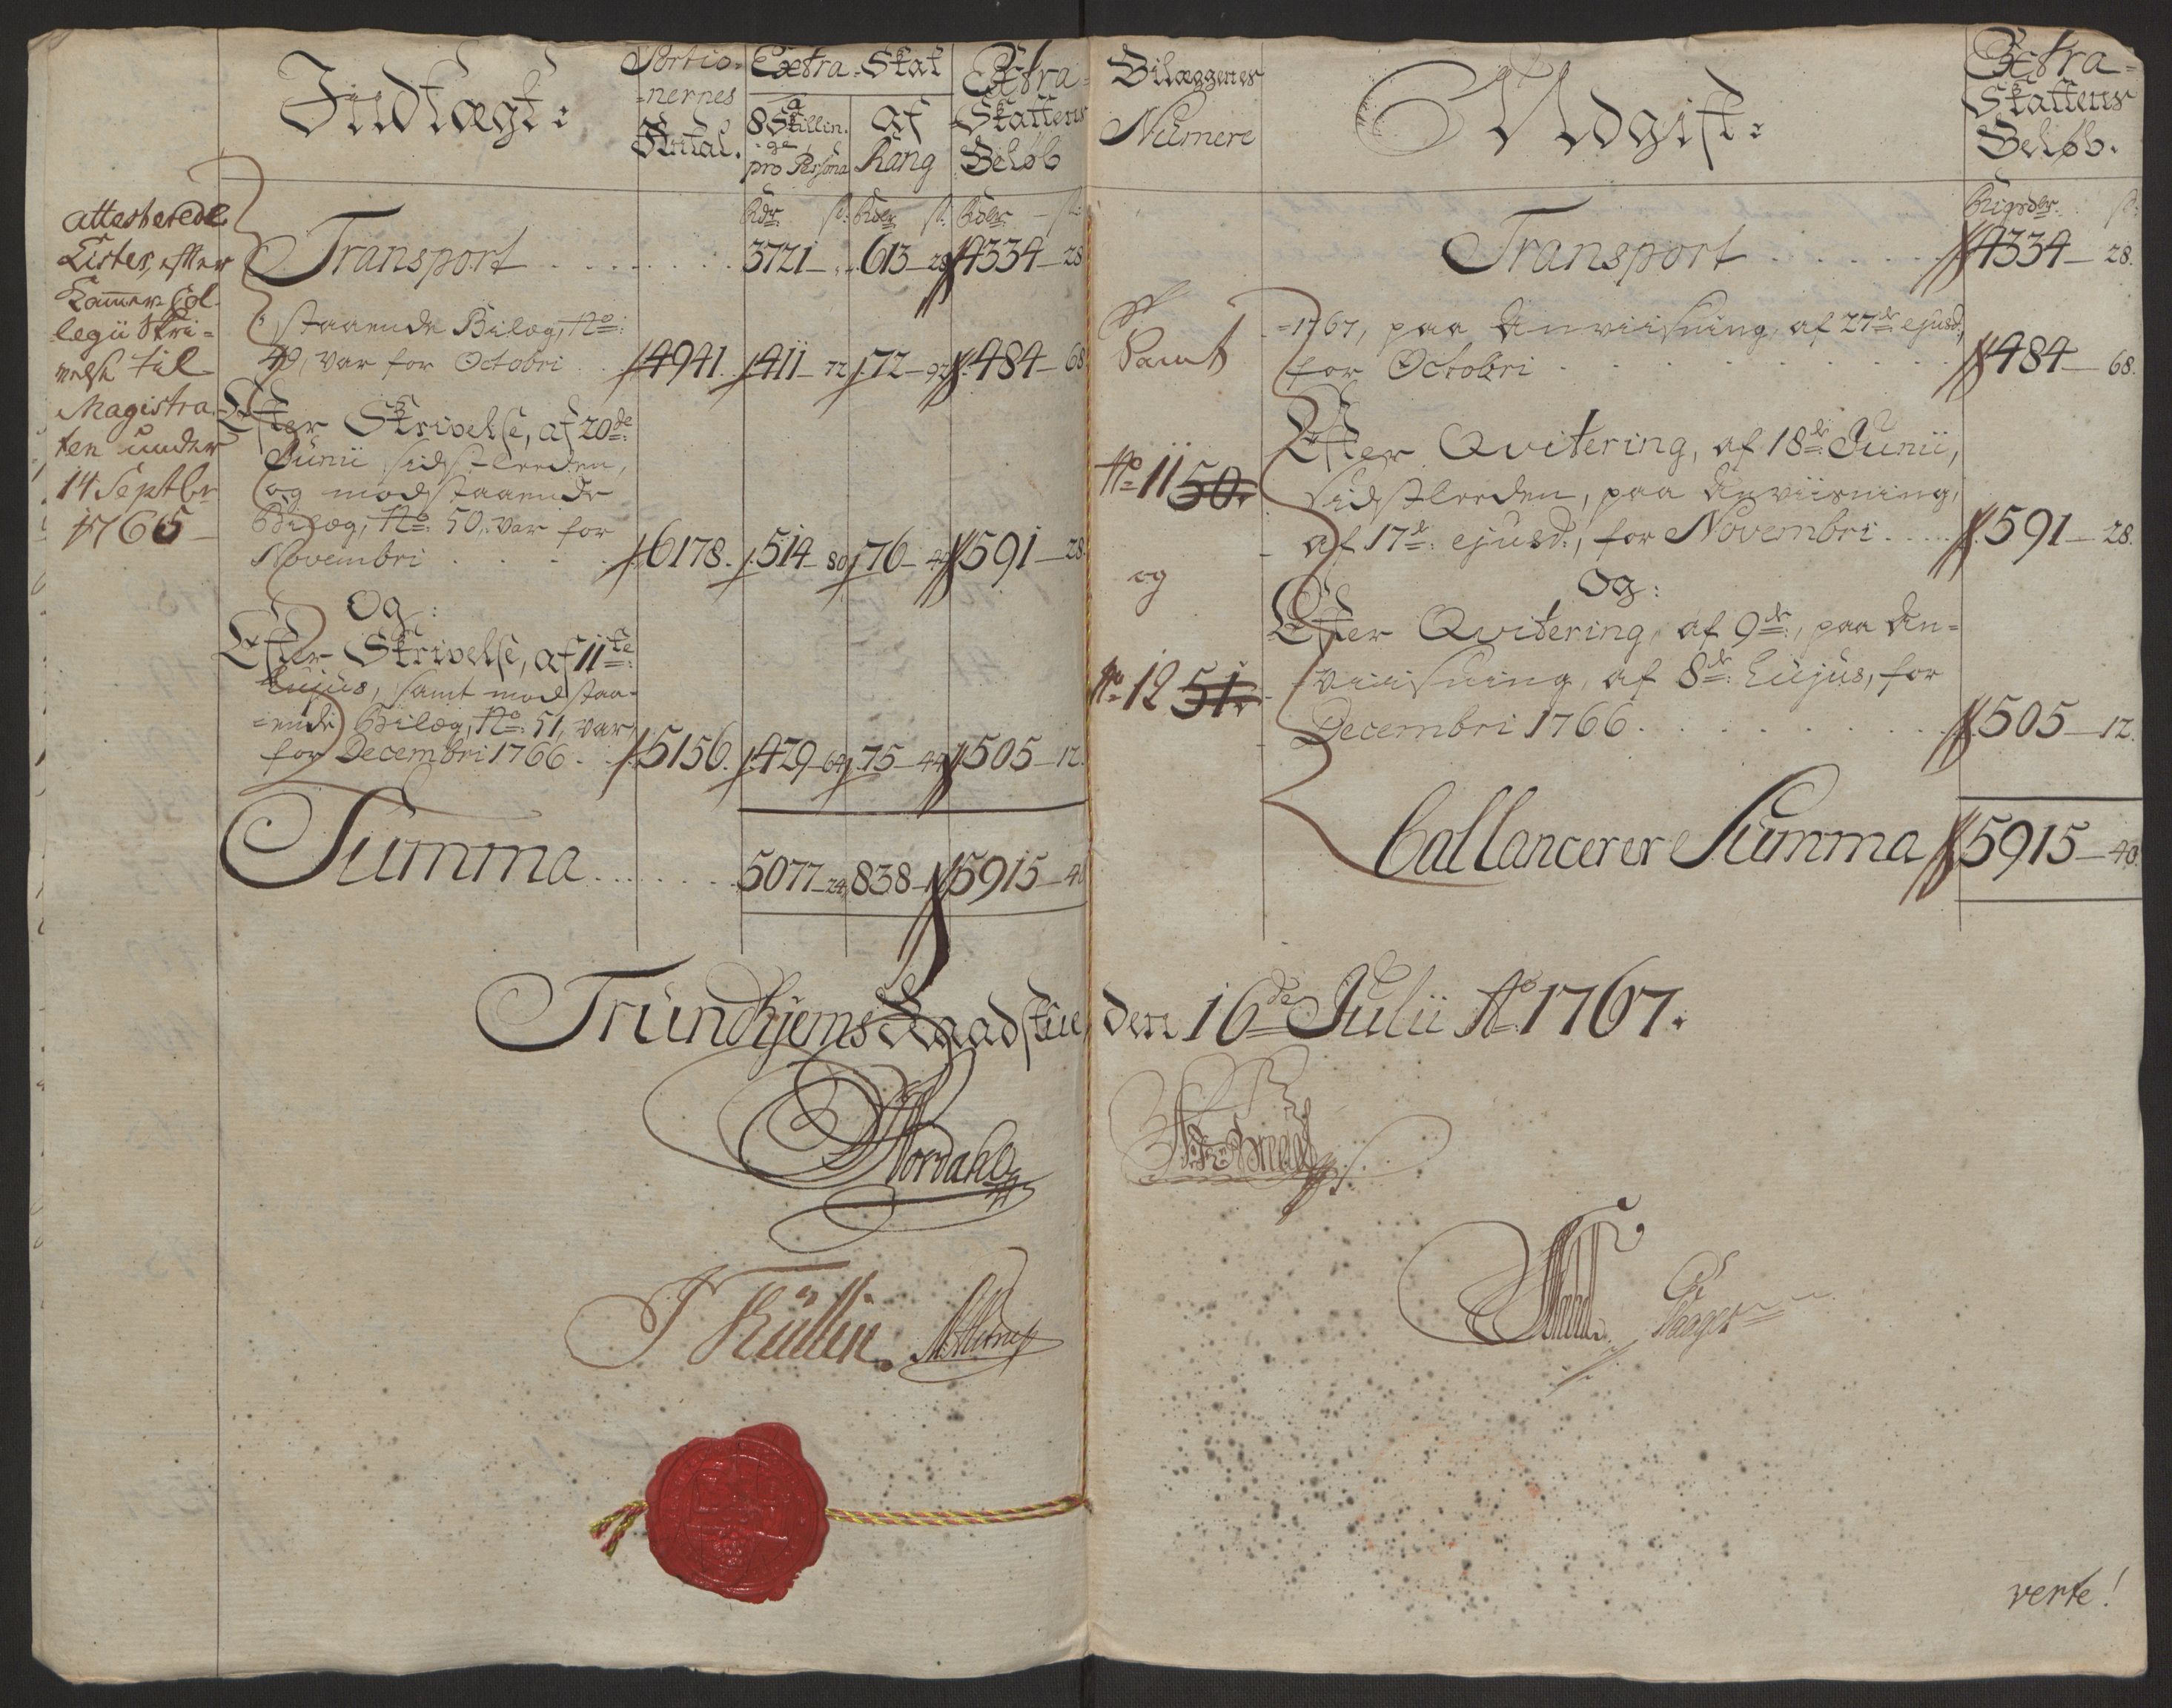 Indtægt:
Portio-
-nernes
Antal.
Extra-Skat
a
8 Skillin-
ge
pro Persona
af
Rang
Extra-
Skattens
Beløb
Rdr ſ: Rdlr ſ: Rdlr ſ:
attesterede
Lister, efter
Kammer-Col-
legii Skri-
velse til
Magistra-
ten under
14 Septbr
1765
Transport . . . . . . . 3721 613 28 4334 28
staaende Bilag, No:
49, var for Octobri . . 4941. 411 72 72 92 484 68
Efter Skrivelse, af 20de:
Junii sidstleeden,
og modstaaende
Bilag, No: 50, var for
Novembri . . . . 6178. 514 80 76 44 591 28
Og:
Efter Skrivelse, af 11te:
hujus, samt modstaa-
-ende Bilag, No: 51, var
for Decembri 1766 . . 5156. 429 64 75 44 505 12.
Summa . . . . . . . 5077 24 838 5915 40
Trundhjems Raadstue, den 16de Julii Ao 1767.
Nordahl
J Küllin.
Bilæggenes
Numere
Udgift:
Extra-
Skattens
Beløb.
Rigsdlr. ſ:
Transport . . . . . . 4334 28.
Samt
-1767, paa Anviisning, af 27de ejusd:
for Octobri . . . . . . . . 484 68.
No 11 50.
Efter Qvitering, af 18de: Junii,
sidstleeden, paa Anviisning,
af 17de: ejusd:, for Novembri . . . . . 591 28.
og
Og:
No 12 51.
Efter Qvitering, af 9de:, paa An-
-viiisning, af 8de: hujus, for
Decembri 1766 . . . . . . . . 505 12.
ballancerer Summa 5915 40.
verte!